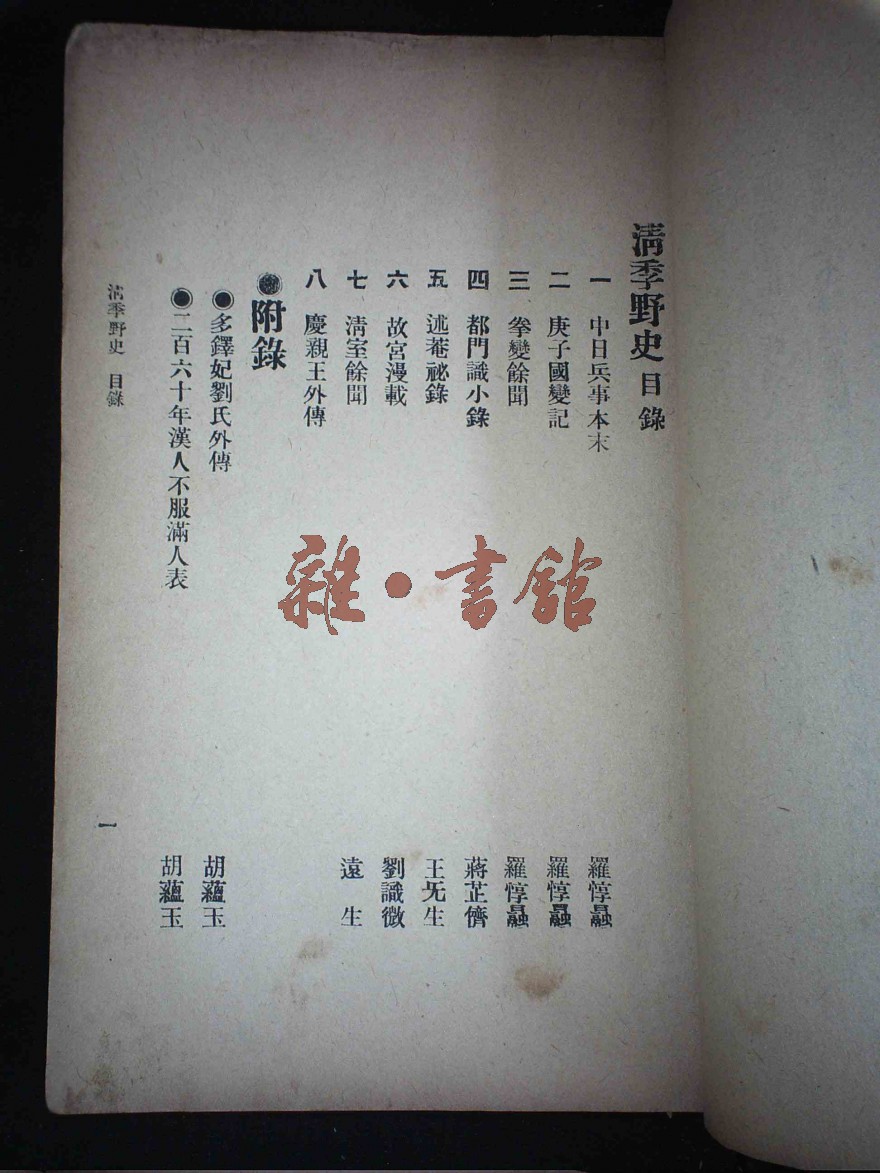 清季野史 目錄
一 中日兵事本末 羅惇曧
二 庚子國變記 羅惇曧
三 拳變餘聞 羅惇曧
四 都門識小錄 蔣芷儕
五 述菴祕錄 王旡生
六 故宮漫載 劉識微
七 清室餘聞 遠生
八 慶親王外傳
●附錄
●多鐸妃劉氏外傳 胡蘊玉
●二百六十年漢人不服滿人表 胡蘊玉
清季野史 目錄 一
雜·書館